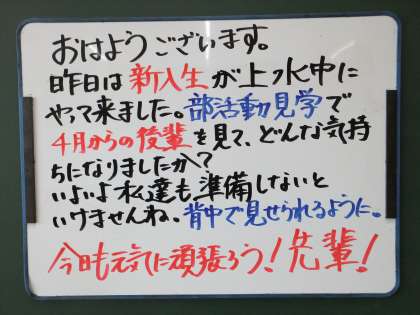 おはようございます。
昨日は新入生が上水中に
やって来ました。部活動見学で
4月からの後輩を見て、どんな気持
ちになりましたか?
いよいよ私達も準備しないと
いけませんね。背中で見せられるように。
今日も元気に頑張ろう!先輩!